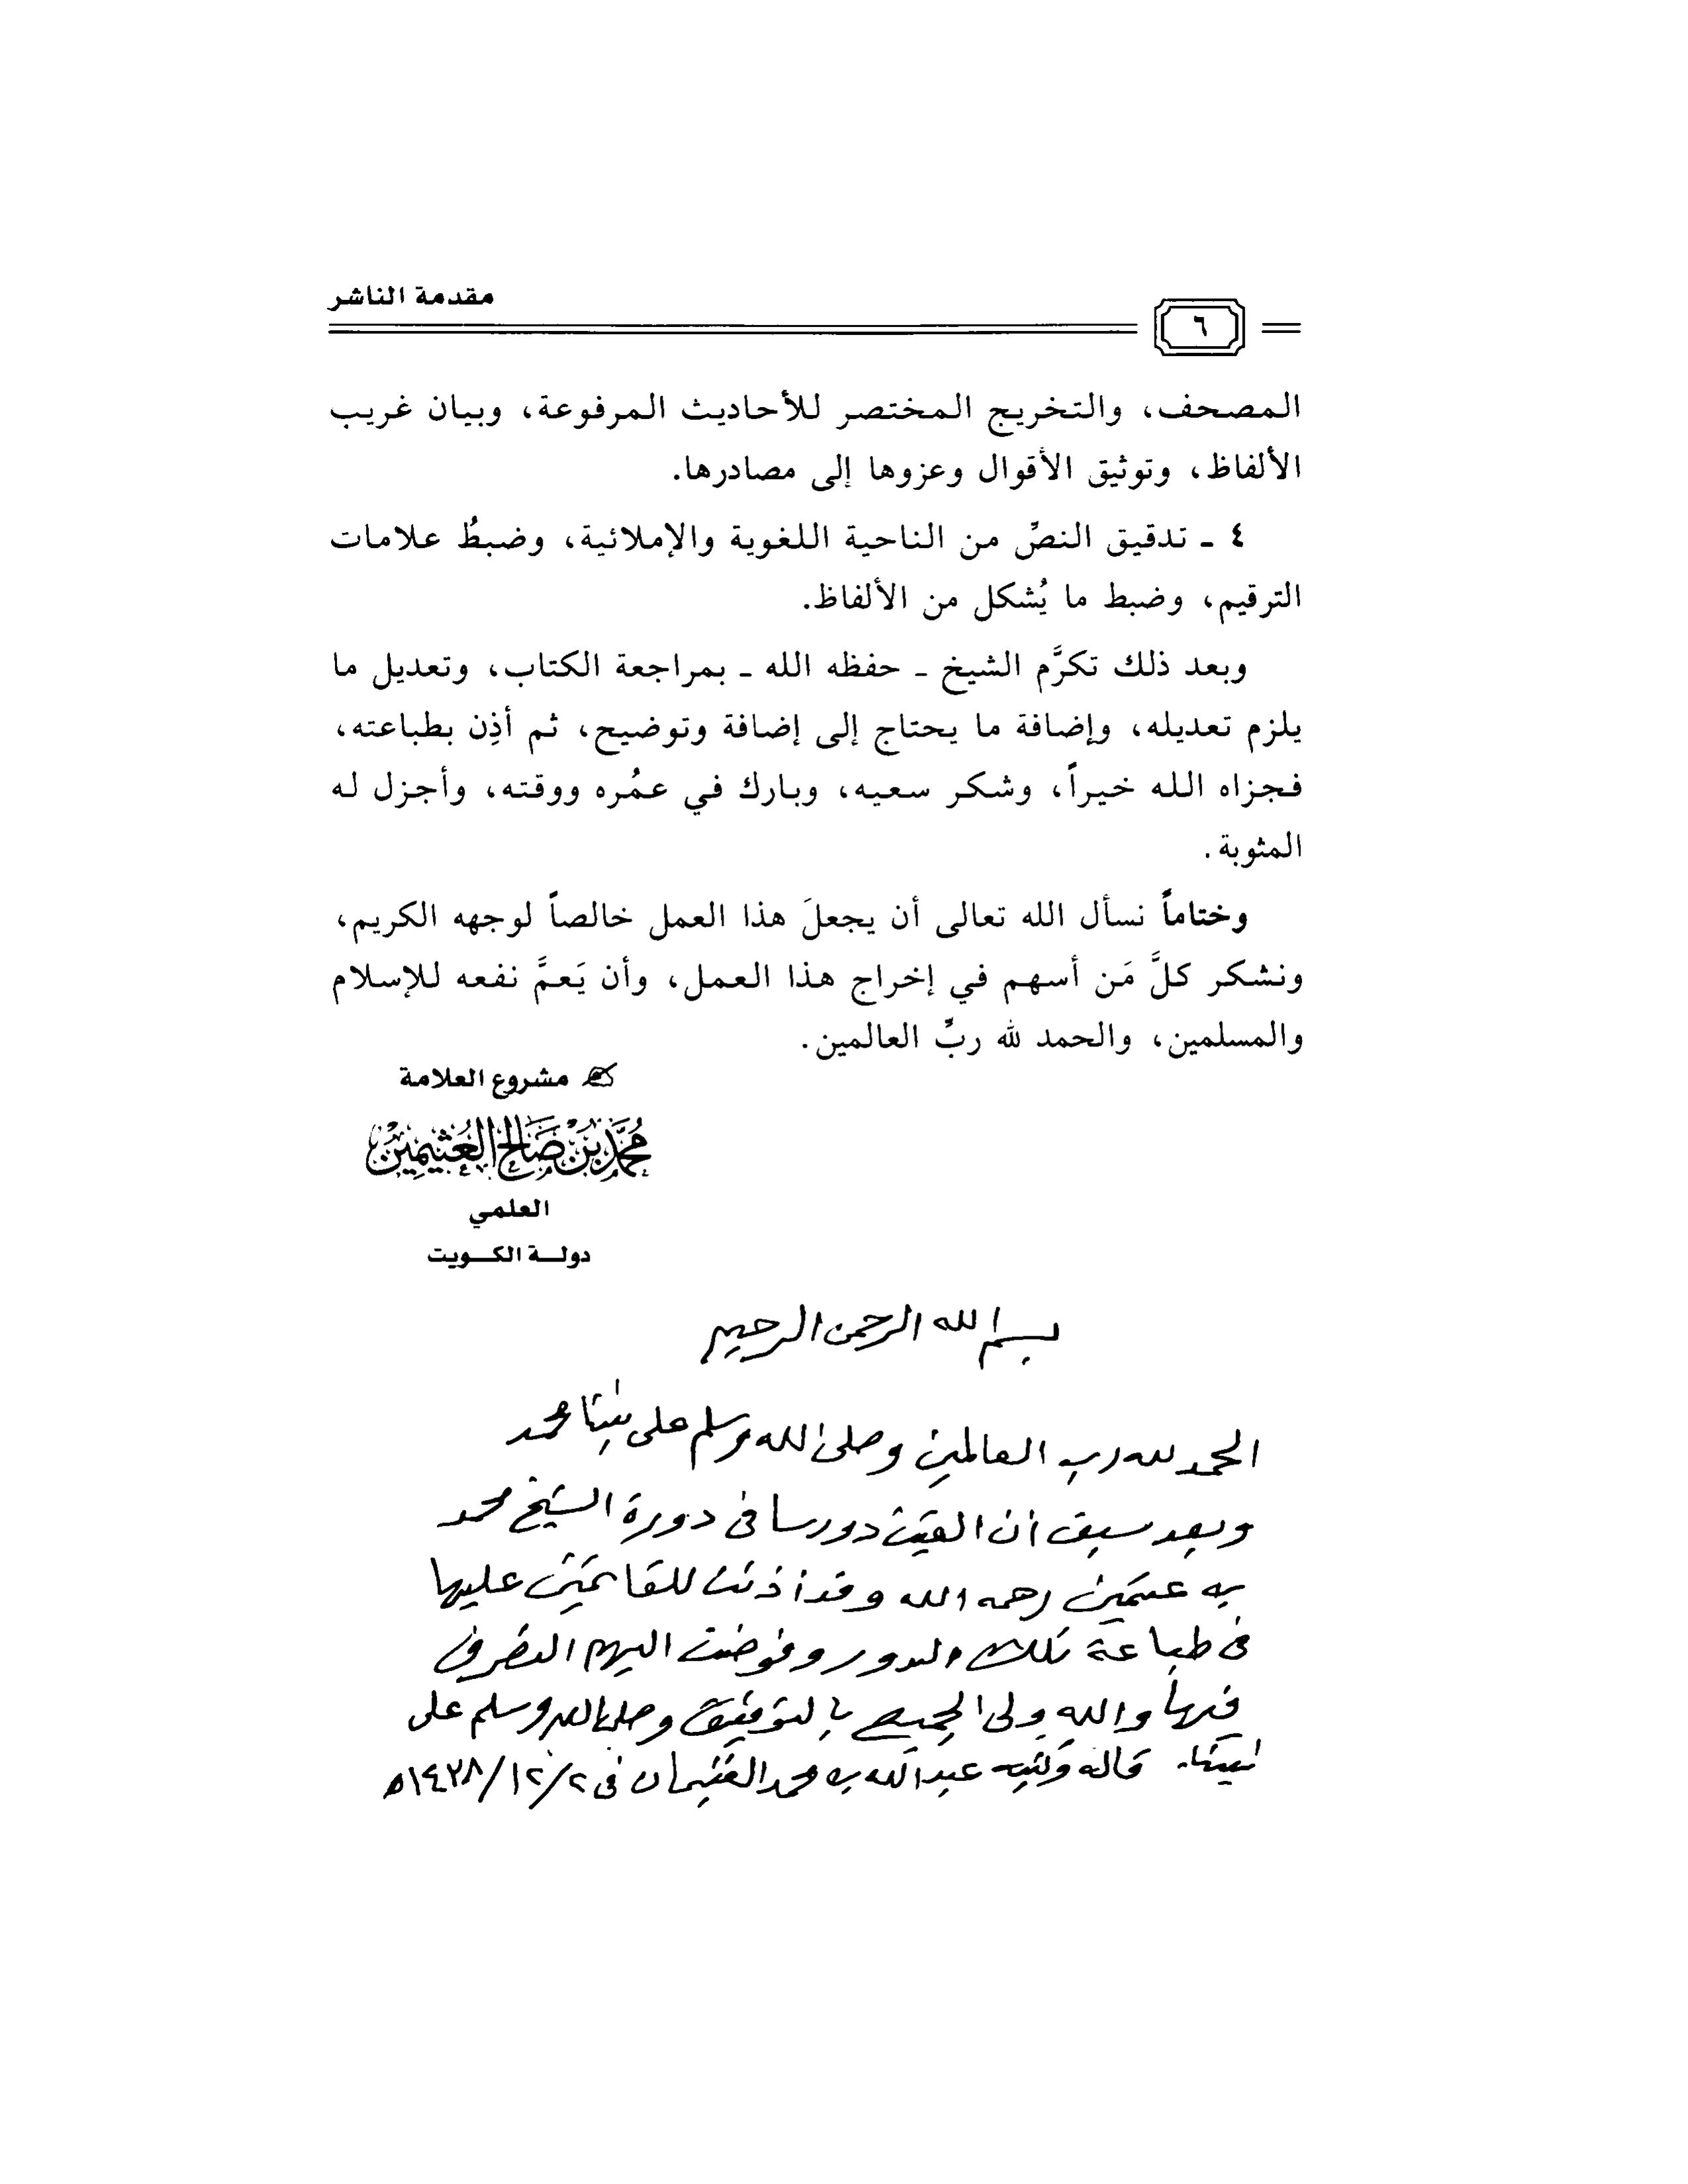 مقدمة الناشر
٦
المصحف، والتخريج المختصر للأحاديث المرفوعة، وبيان غريب
الألفاظ، وتوثيق الأقوال وعزوها إلى مصادرها.
٤ ـ تدقيق النصِّ من الناحية اللغوية والإملائية، وضبطُ علامات
الترقيم، وضبط ما يُشكل من الألفاظ.
وبعد ذلك تكرَّم الشيخ ـ حفظه الله ـ بمراجعة الكتاب، وتعديل ما
يلزم تعديله، وإضافة ما يحتاج إلى إضافة وتوضيح، ثم أذِن بطباعته،
فجزاه الله خيراً، وشكر سعيه، وبارك في عمُره ووقته، وأجزل له
المثوبة.
وختاماً نسأل الله تعالى أن يجعلَ هذا العمل خالصاً لوجهه الكريم،
ونشكر كلَّ مَن أسهم في إخراج هذا العمل، وأن يَعمَّ نفعه للإسلام
والمسلمين، والحمد لله ربِّ العالمين.
مشروع العلامة
مُحَمَّد بْن صَالِح العُثَيمِيْن
العلمي
دولــة الكــويت
بسم الله الرحمن الرحيم
الحمد لله رب العالمين وصلى الله وسلم على نبينا محمد
وبعد سبق أن ألقيت دورسا في دورة الشيخ محمد
بن عثيمين رحمه الله وقد أذنت للقائمين عليها
في طباعة تلك الدور وفوضت اليهم التصرف
فيها والله ولي الجميع بالتوفيق وصلى الله وسلم على
نبينا. قاله وكتبه عبد الله بن محمد الغنيمان في ١٤٣٨/١٢/٢ه